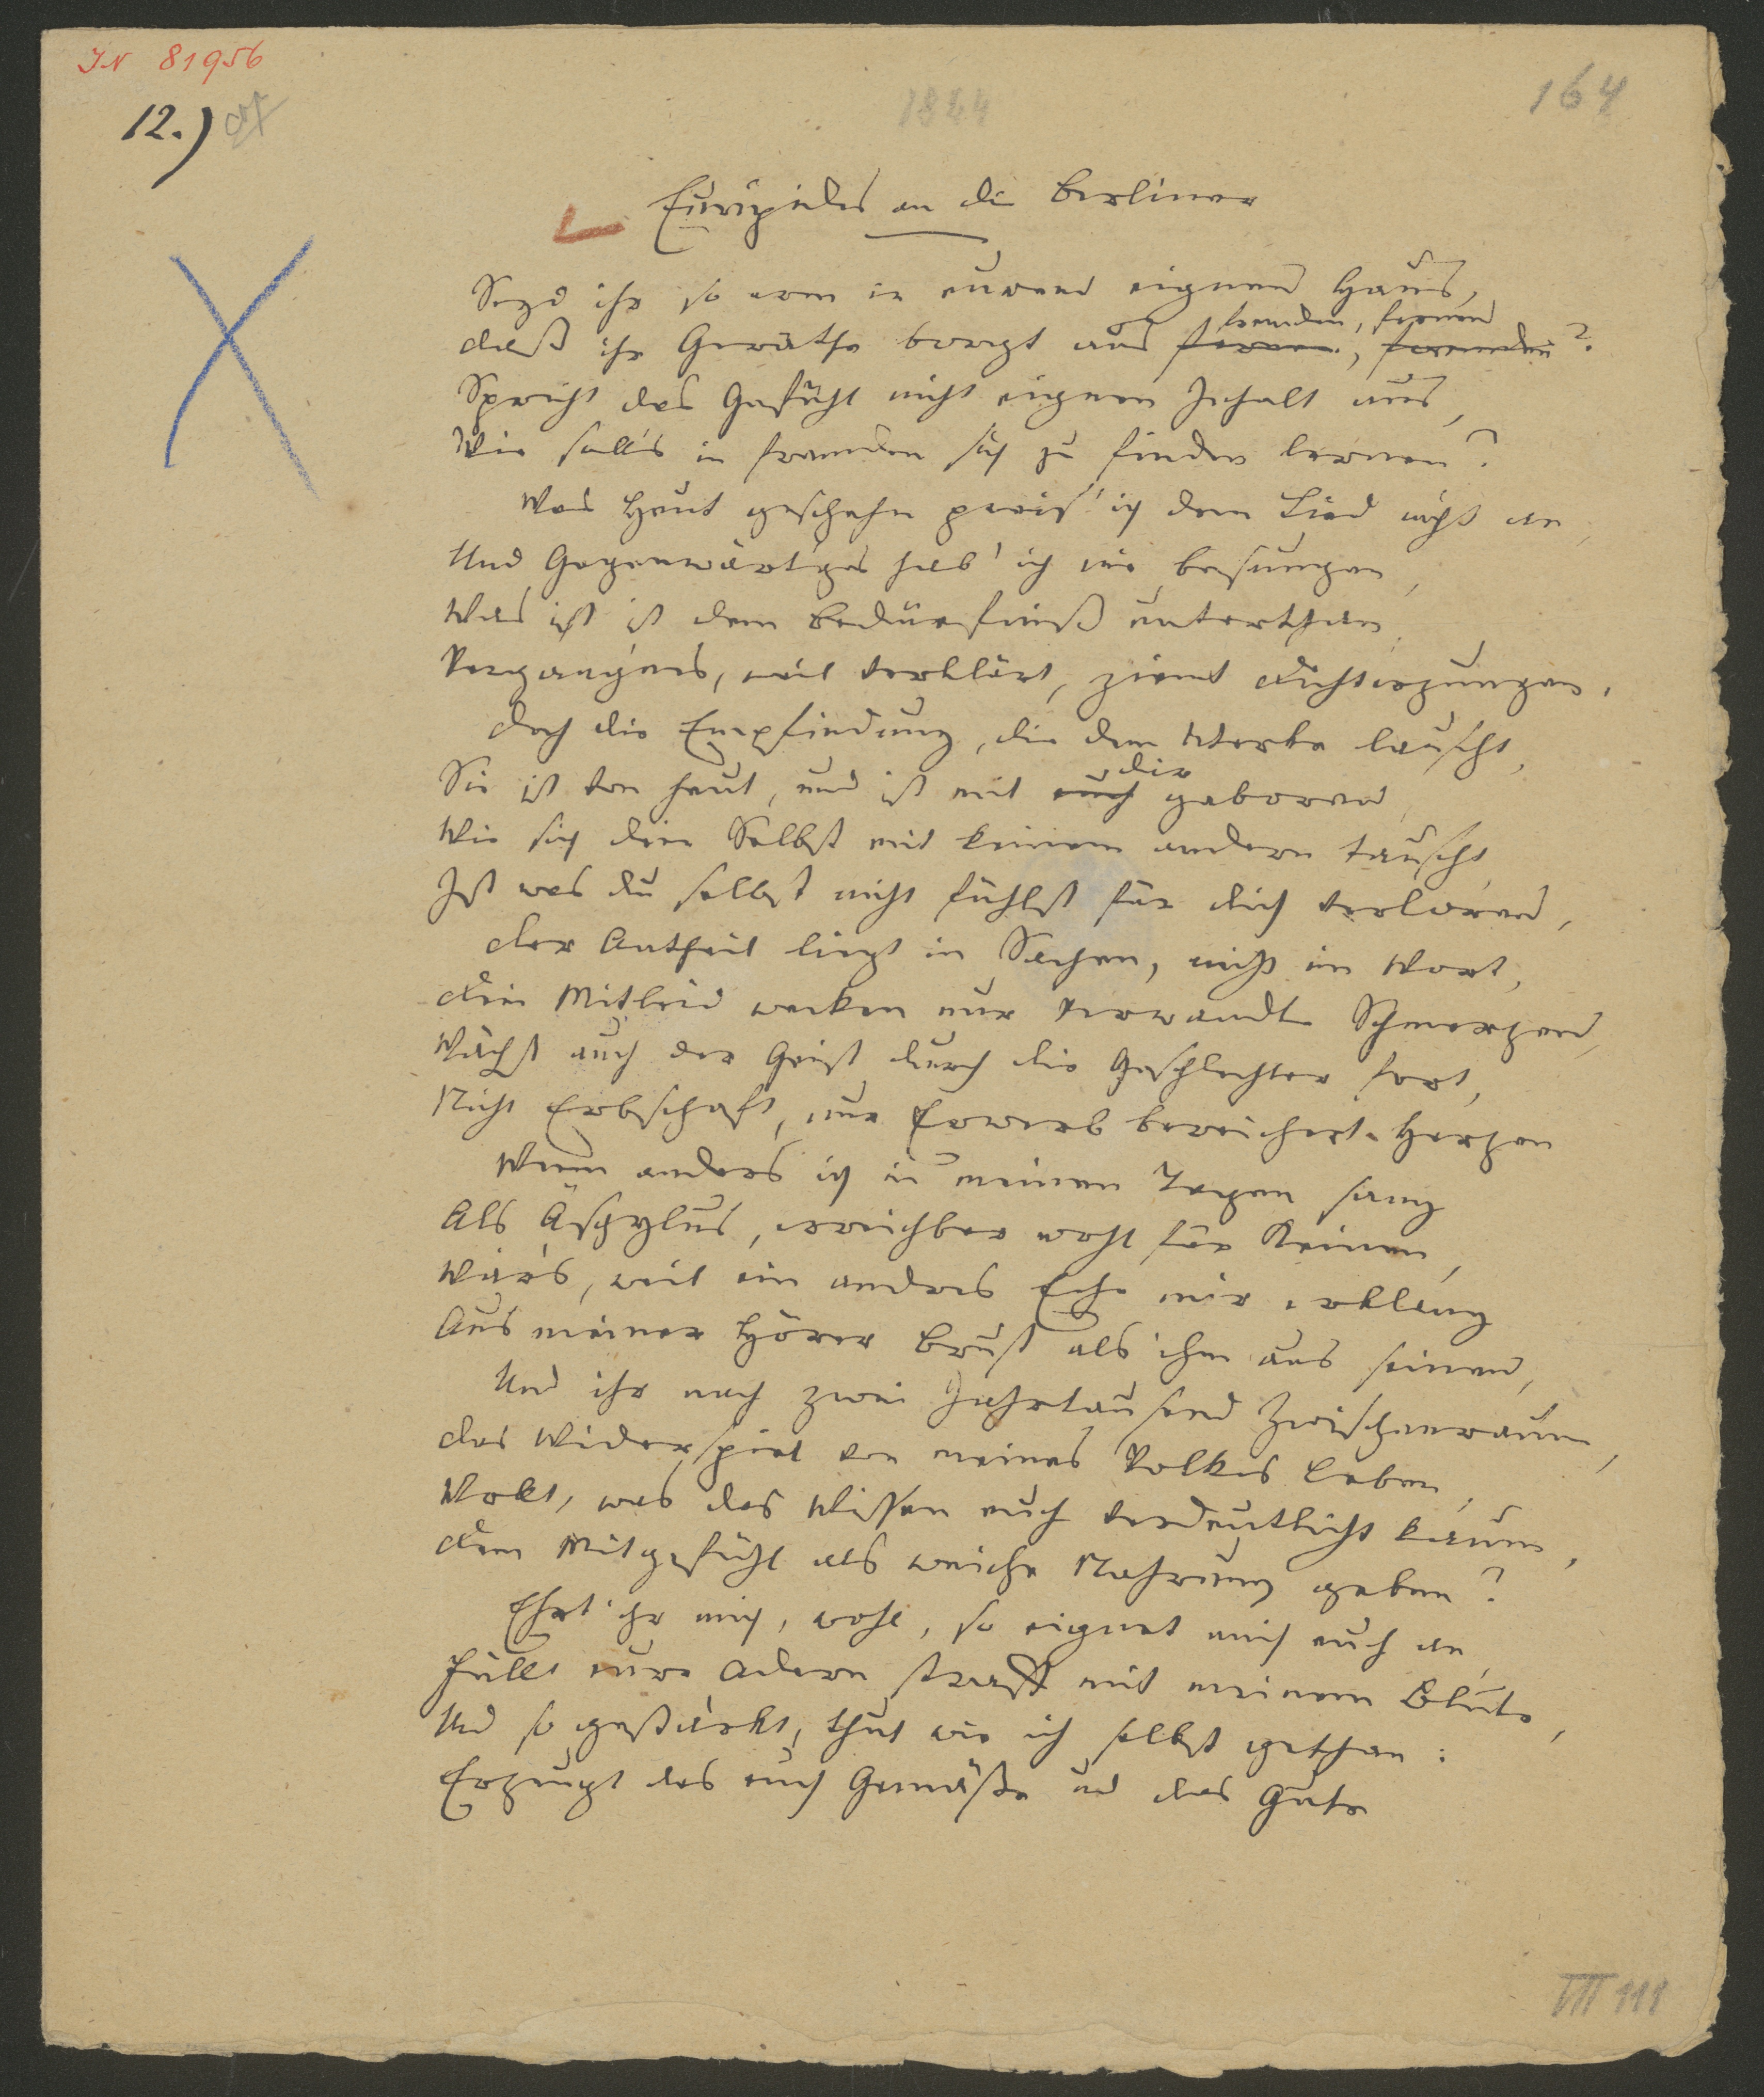 IN 81956
12.)
1844
164
Euripides an die Berliner
Seyd ihr so arm in euerem eignen Haus,
daß ihr Geräthe borgt aus fernen, fremden?
fremden, fernen
Spricht das Gefühl nicht eignen Inhalt aus,
Wie soll's in fremden sich zu finden lernen?
Was Heut geschehn pries' ich dem Lied nicht an,
Und Gegenwärtiges hab' ich nie besungen,
Was ist ist dem Bedürfniß unterthan,
Vergangnes, weil verklärt, ziemt Dichterzungen.
doch die Empfindung, die dem Werke lauscht,
Sie ist von heut, und ist mit euch geboren,
dir
Wie sich dein Selbst mit keinem andern tauscht,
Ist was du selbst nicht fühlst für dich verloren,
der Antheil liegt in Sachen, nicht im Wort,
dein Mitleid wecken nur verwandte Schmerzen,
Wächst auch der Geist durch die Geschlechter fort,
Nicht Erbschaft, nur Erwerb bereichert Herzen
Wenn anders ich in meinen Tagen sang
Als Äschylus, erreichbar wohl für Keinen,
Wär's, weil ein andres Echo mir erklang
Aus meiner Hörer Brust als ihm aus seinen,
Und ihr nach zwei Jahrtausend Zwischenraum,
das Widerspiel von meines Volkes Leben,
Wollt, was das Wissen euch verdeutlicht kaum,
dem Mitgefühl als weiche Nahrung geben?
Ehrt ihr mich, wohl, so eignet mich euch an,
Füllt eure Adern straff mit meinem Blute,
Und so gestärkt, thut wie ich selbst gethan:
Erzeugt das euch Gemäße und das Gute
VIII 111